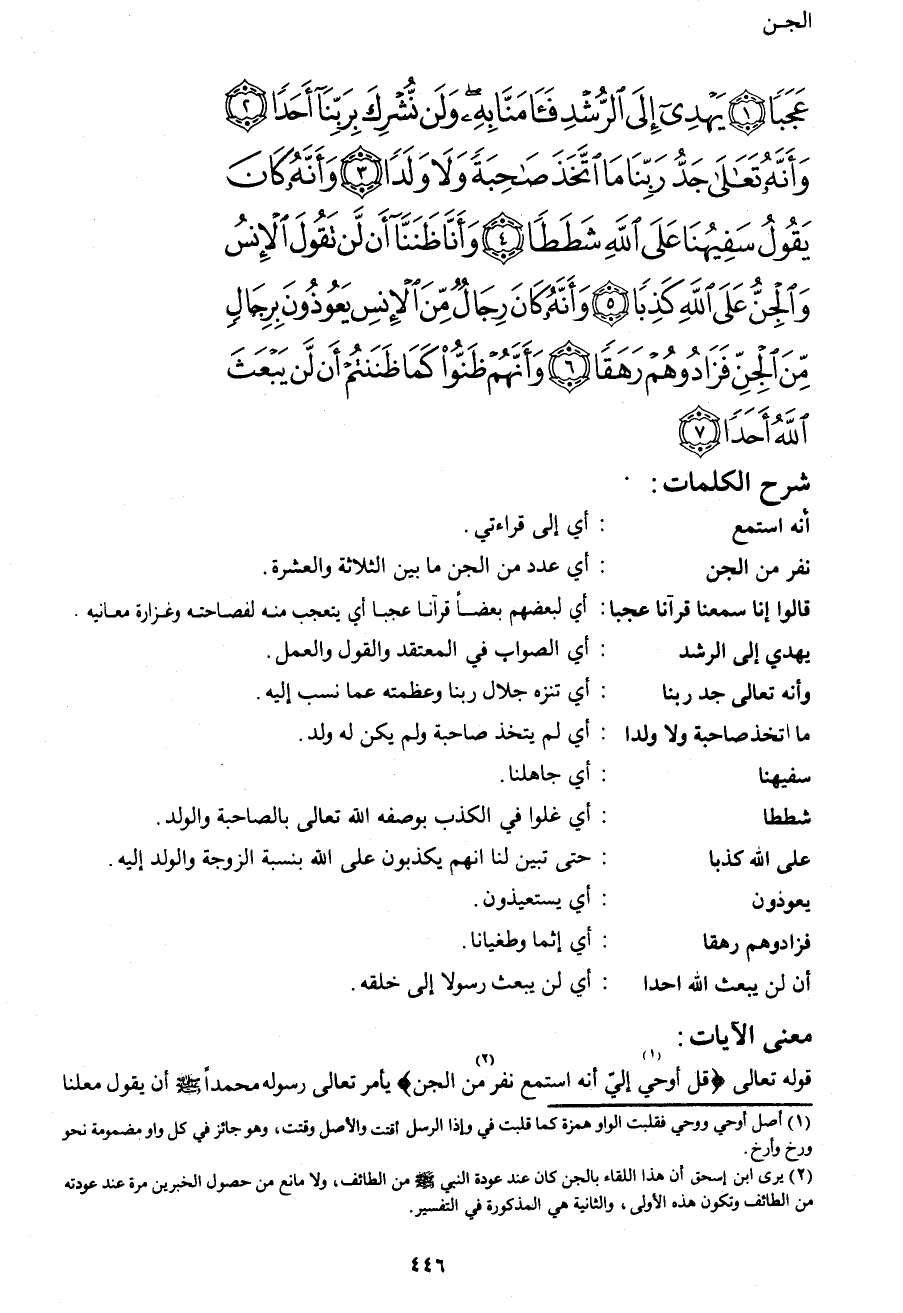 الجـن
عَجَبًا ۝١ يَهْدِىٓ إِلَى ٱلرُّشْدِ فَـَٔامَنَّا بِهِۦۖ وَلَن نُّشْرِكَ بِرَبِّنَآ أَحَدًا ۝٢
وَأَنَّهُۥ تَعَٰلَىٰ جَدُّ رَبِّنَا مَا ٱتَّخَذَ صَٰحِبَةً وَلَا وَلَدًا ۝٣ وَأَنَّهُۥ كَانَ
يَقُولُ سَفِيهُنَا عَلَى ٱللَّهِ شَطَطًا ۝٤ وَأَنَّا ظَنَنَّآ أَن لَّن تَقُولَ ٱلْإِنسُ
وَٱلْجِنُّ عَلَى ٱللَّهِ كَذِبًا ۝٥ وَأَنَّهُۥ كَانَ رِجَالٌ مِّنَ ٱلْإِنسِ يَعُوذُونَ بِرِجَالٍ
مِّنَ ٱلْجِنِّ فَزَادُوهُمْ رَهَقًا ۝٦ وَأَنَّهُمْ ظَنُّوا۟ كَمَا ظَنَنتُمْ أَن لَّن يَبْعَثَ
ٱللَّهُ أَحَدًا ۝٧
شرح الكلمات :
أنه استمع : أي إلى قراءتي .
نفر من الجن : أي عدد من الجن ما بين الثلاثة والعشرة .
قالوا إنا سمعنا قرآنا عجبا : أي لبعضهم بعضـاً قرآنـا عجبـا أي يتعجب منـه لفصـاحتـه وغـزارة معـانيه .
يهدي إلى الرشد : أي الصواب في المعتقد والقول والعمل .
وأنه تعالى جد ربنا : أي تنزه جلال ربنا وعظمته عما نسب إليه .
ما اتخذ صاحبة ولا ولدا : أي لم يتخذ صاحبة ولم يكن له ولد .
سفيهنا : أي جاهلنا .
شططا : أي غلوا في الكذب بوصفه الله تعالى بالصاحبة والولد .
على الله كذبا : حتى تبين لنا انهم يكذبون على الله بنسبة الزوجة والولد إليه .
يعوذون : أي يستعيذون .
فزادوهم رهقا : أي إثما وطغيانا .
أن لن يبعث الله احدا : أي لن يبعث رسولا إلى خلقه .
معنى الآيات :
قوله تعالى ﴿قل أوحي(١) إليّ أنه استمع نفر(٢) من الجن﴾ يأمر تعالى رسوله محمداً ﷺ أن يقول معلنا
(١) أصل أوحي ووحي فقلبت الواو همزة كما قلبت في وإذا الرسل أقتت والأصل وقتت، وهو جائز في كل واو مضمومة نحو
ورخ وأرخ .
(٢) يرى ابن إسحق أن هذا اللقاء بالجن كان عند عودة النبي ﷺ من الطائف، ولا مانع من حصول الخبرين مرة عند عودته
من الطائف وتكون هذه الأولى، والثانية هي المذكورة في التفسير .
٤٤٦